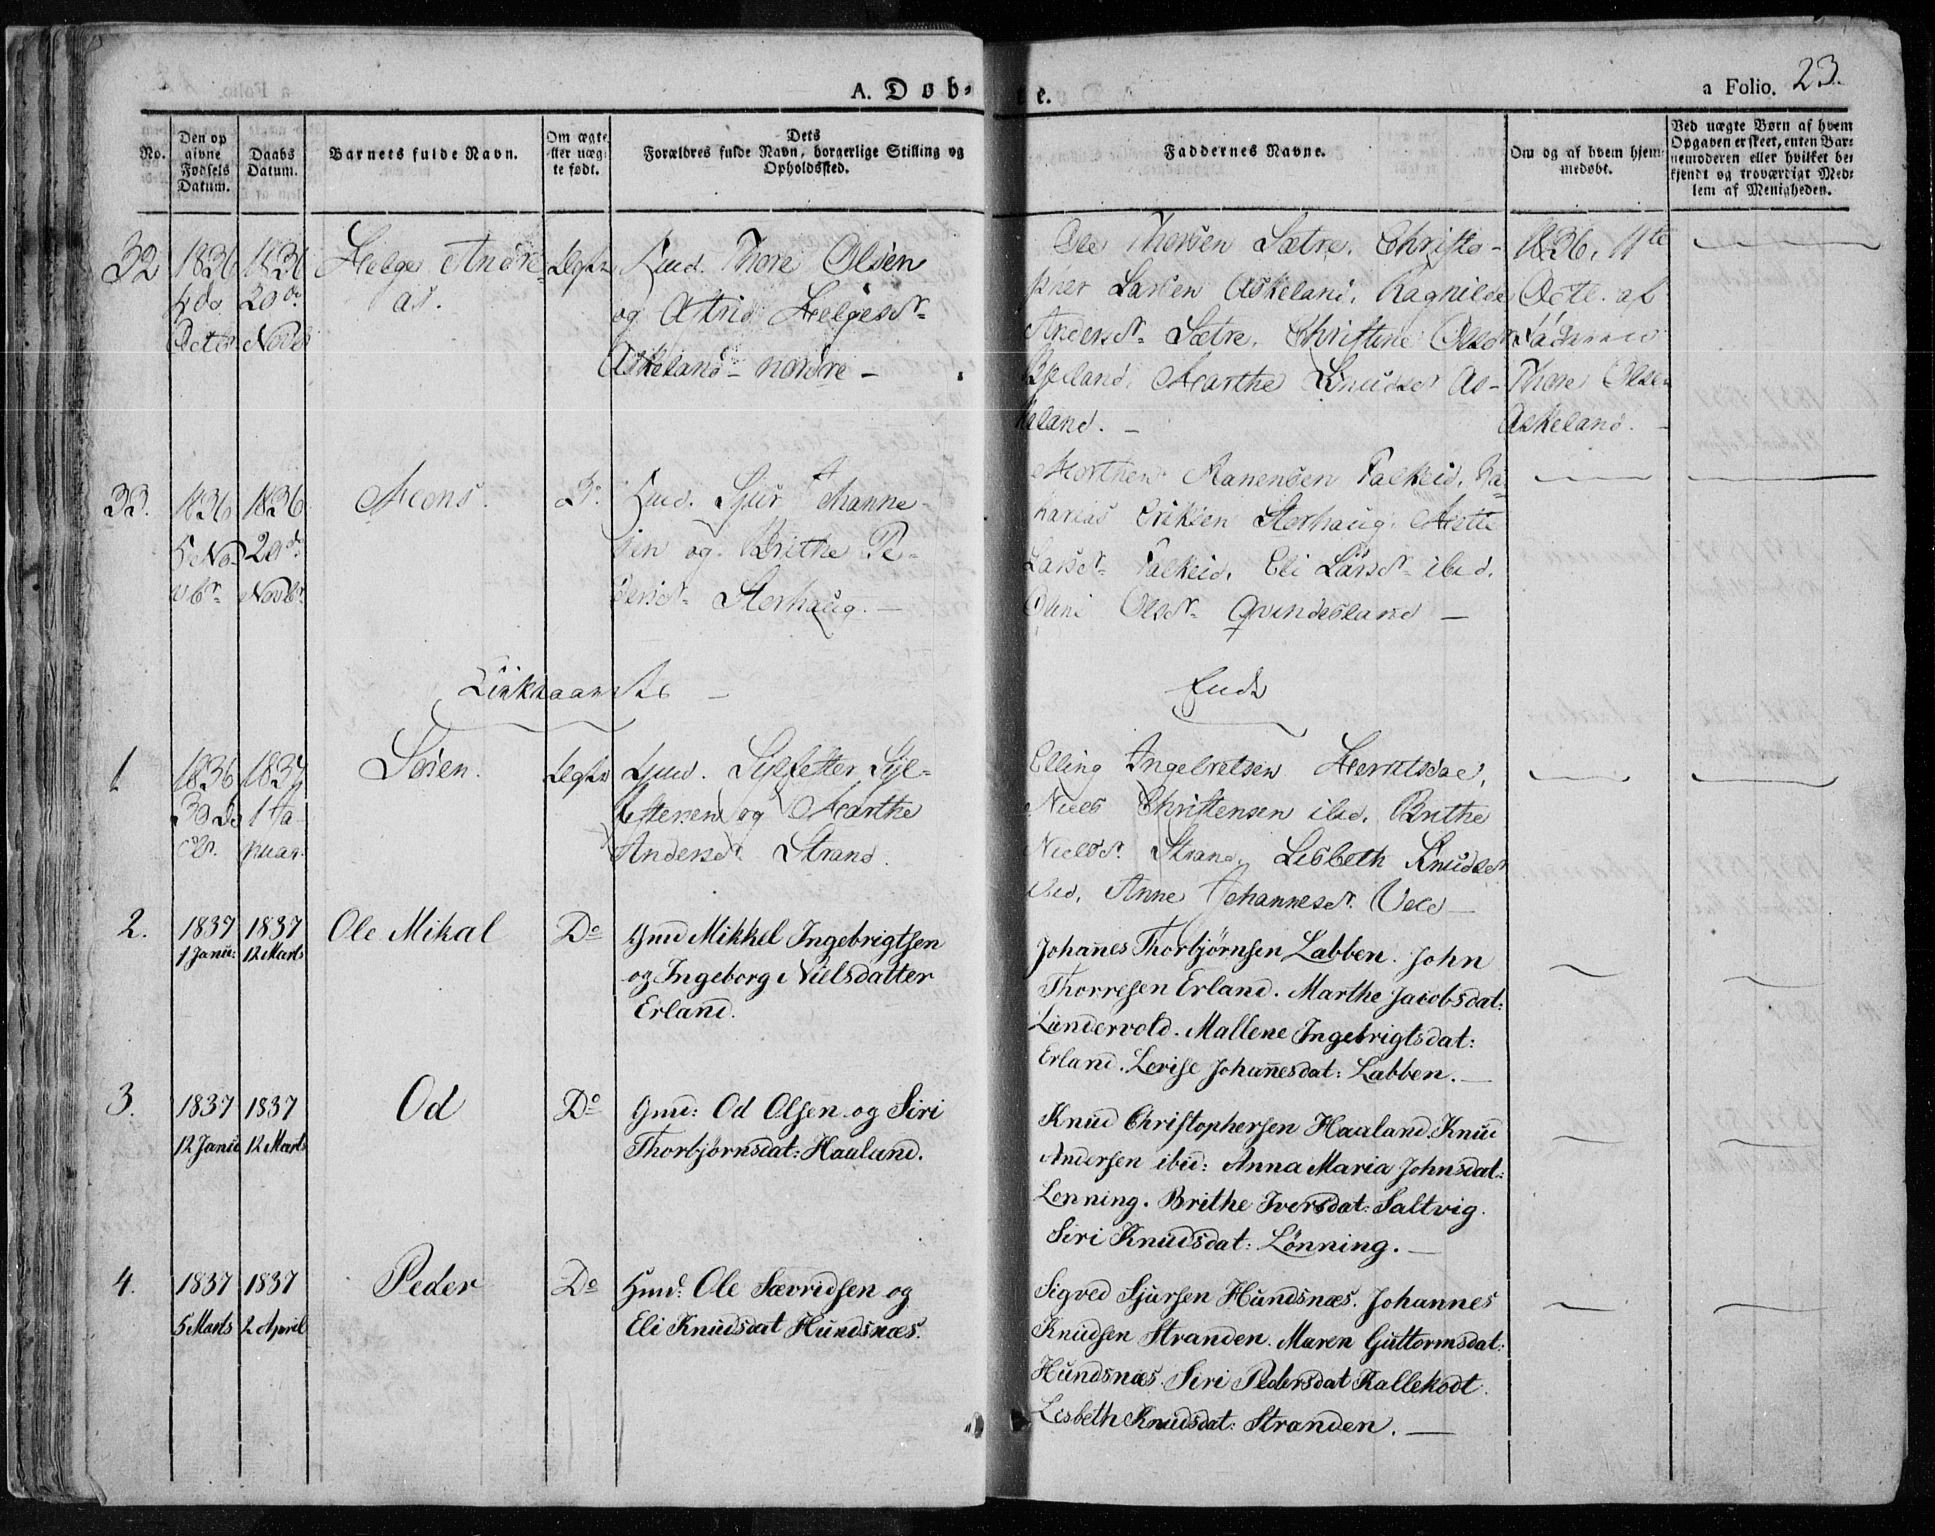 A. Døb-
te.
a Folio. 23.
No.
Den op
givne
Fødsels
Datum.
Daabs
Datum.
Barnets fulde Navn.
Om ægte
eller uæg-
te født.
Dets
Forældres fulde Navn, borgerlige Stilling og
Opholdssted.
Faddernes Navne.
Om og af hvem hjem-
medøbt.
Ved uægte Børn af hvem
Opgaven er skeet, enten Bar-
nemoderen eller hvilket be-
kjendt og troværdigt Med-
lem af Menigheden.
32
1836
1836
20de
Helge Andre
as.
Ægte
Thore Olsen
og Astrid Helgesdr
Askeland nordre -
Ole Thorsen Sætre, Christo-
pher Larsen Askeland, Ragnilde
Andersdr Sætre, Christine Olsdr
Marthe Knudsdr As-
keland. -
1836, 11te
Octb. af
Faderen
Thore Olsen
Askeland.
33.
1836
5 No-
vbr
1836
20de
Novbr
Mons.
Do
Sjur Johanne-
sen og Brithe Pe-
dersdr Storhaug. -
Morthen Aanensen Falkeid, Za-
karias Eriksen Storhaug, Mette
Larsdr Falkeid, Eli Larsdr ibid.
Olsdr Qvindesland -
1
1836
30 De
cbr.
1837
1 Ja
nuar.
Søren.
Ægte
Gmd. Sylfester Syl-
festersen og Marthe
Andersdr Strand.
Elling Ingebretsen
Niels Christensen ibid, Brithe
Nielsdr Strand, Lisbeth Knudsdr
ibid, Anne Johannesdr
2.
1837
1 Janu:
1837
12 Marts
Ole Mikal
Do
Gmd Mikkel Ingebrigtsen
og Ingeborg Nielsdatter
Erland.
Johannes Thorbjørnsen Labben. John
Thorresen Erland. Marthe Jacobsdat:
Lundervold. Mallene Ingebrigtsdat:
Erland. Lovise Johannesdat: Labben. -
3.
1837
12 Janu
1837
12 Marts
Od
Do
Gmd: Od Olsen og Siri
Thorbjørnsdat: Haaland.
Knud Christophersen Haaland. Knud
Andersen ibid: Anna Maria Johnsdat:
Lønning. Brithe Iversdat: Saltvig.
Siri Knudsdat: Lønning. -
4.
1837
5 Marts
1837
2 April
Peder
Do
Hmd: Ole Sævridsen og
Eli Knudsdat Hundsnæs.
Sigved Sjursen Hundsnæs. Johannes
Knudsen Stranden. Maren Guttormsdat:
Hundsnæs. Siri Pedersdat Kallekodt.
Lisbeth Knudsdat: Stranden. -